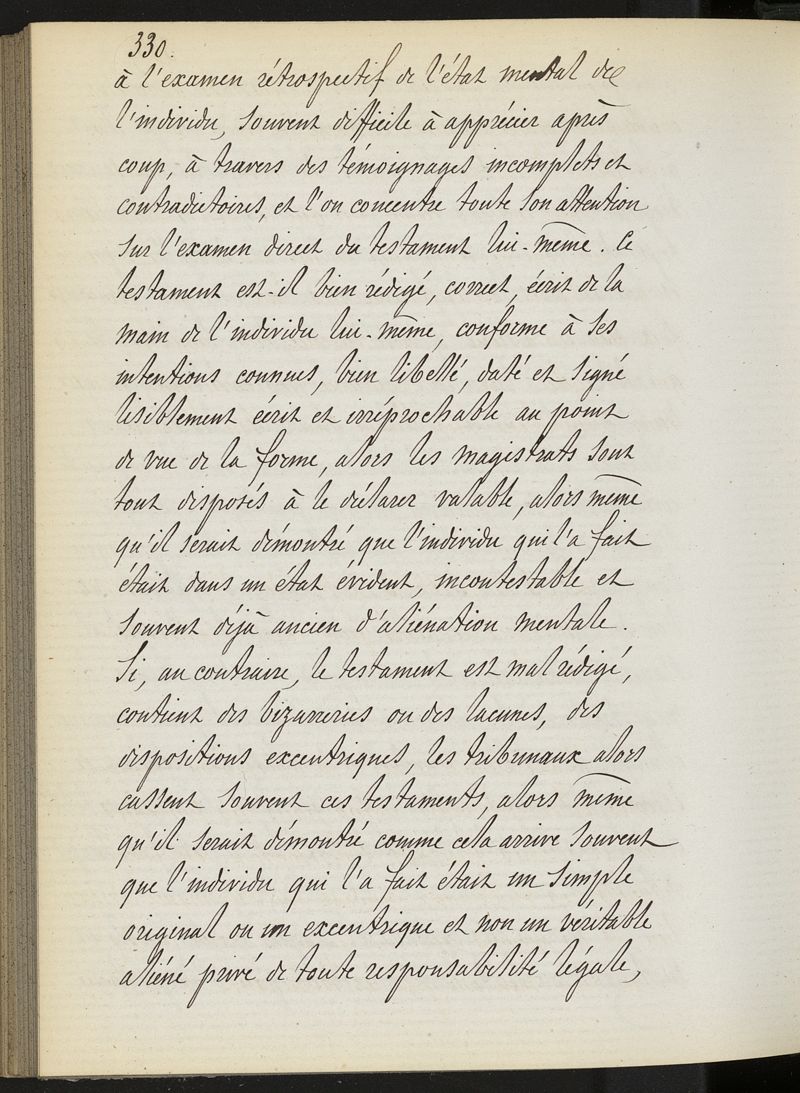 330.
à l'examen rétrospectif de l'état mental de
l'individu, souvent difficile à apprécier après
coup, à travers des témoignages incomplets et
contradictoires, et l'on concentre toute son attention
sur l'examen direct du testament lui-même. Ce
testament est-il bien rédigé, correct, écrit de la
main de l'individu lui-même, conforme à ses
intentions connues, bien libellé, daté et signé
lisiblement écrit et irréprochable au point
de vue de la forme, alors les magistrats sont
tout disposés à le déclarer valable, alors même
qu'il serait démontré que l'individu qui l'a fait
était dans un état évident, incontestable et
souvent déjà ancien d'aliénation mentale.
Si, au contraire, le testament est mal rédigé,
contient des bizarreries ou des lacunes, des
dispositions excentriques, les tribunaux alors
cassent souvent ces testaments, alors même
qu'il serait démontré comme cela arrive souvent
que l'individu qui l'a fait était un simple
original ou un excentrique et non un véritable
aliéné privé de toute responsabilité légale,